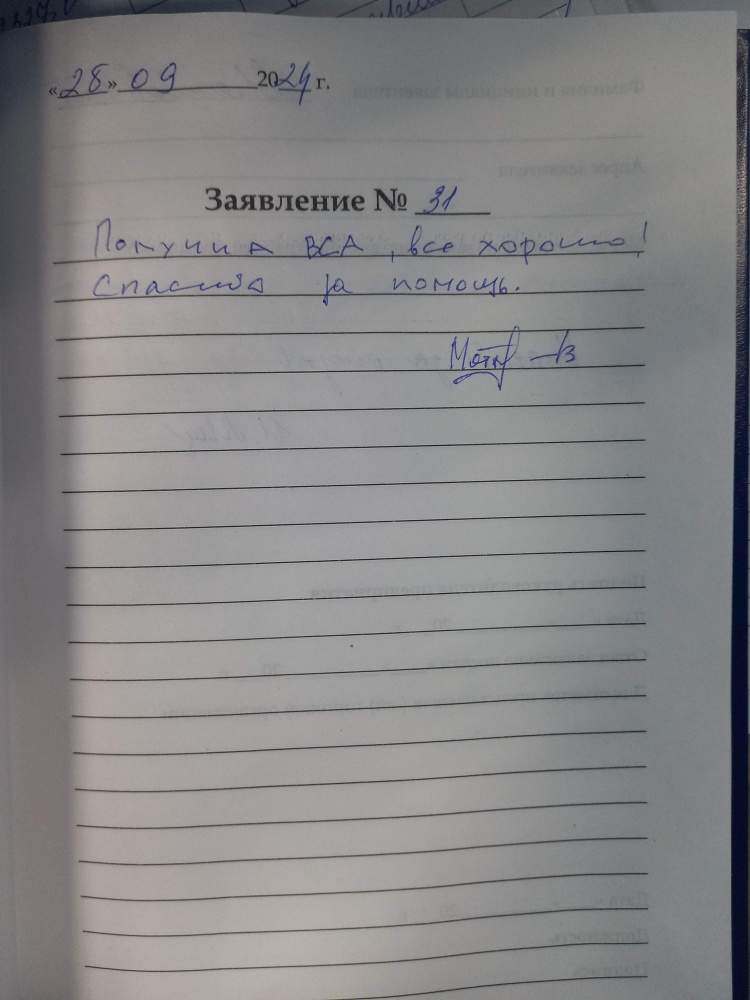 «28» 09 2024 г.
Заявление № 31
Получил ВСА, все хорошо!
Спасибо за помощь.